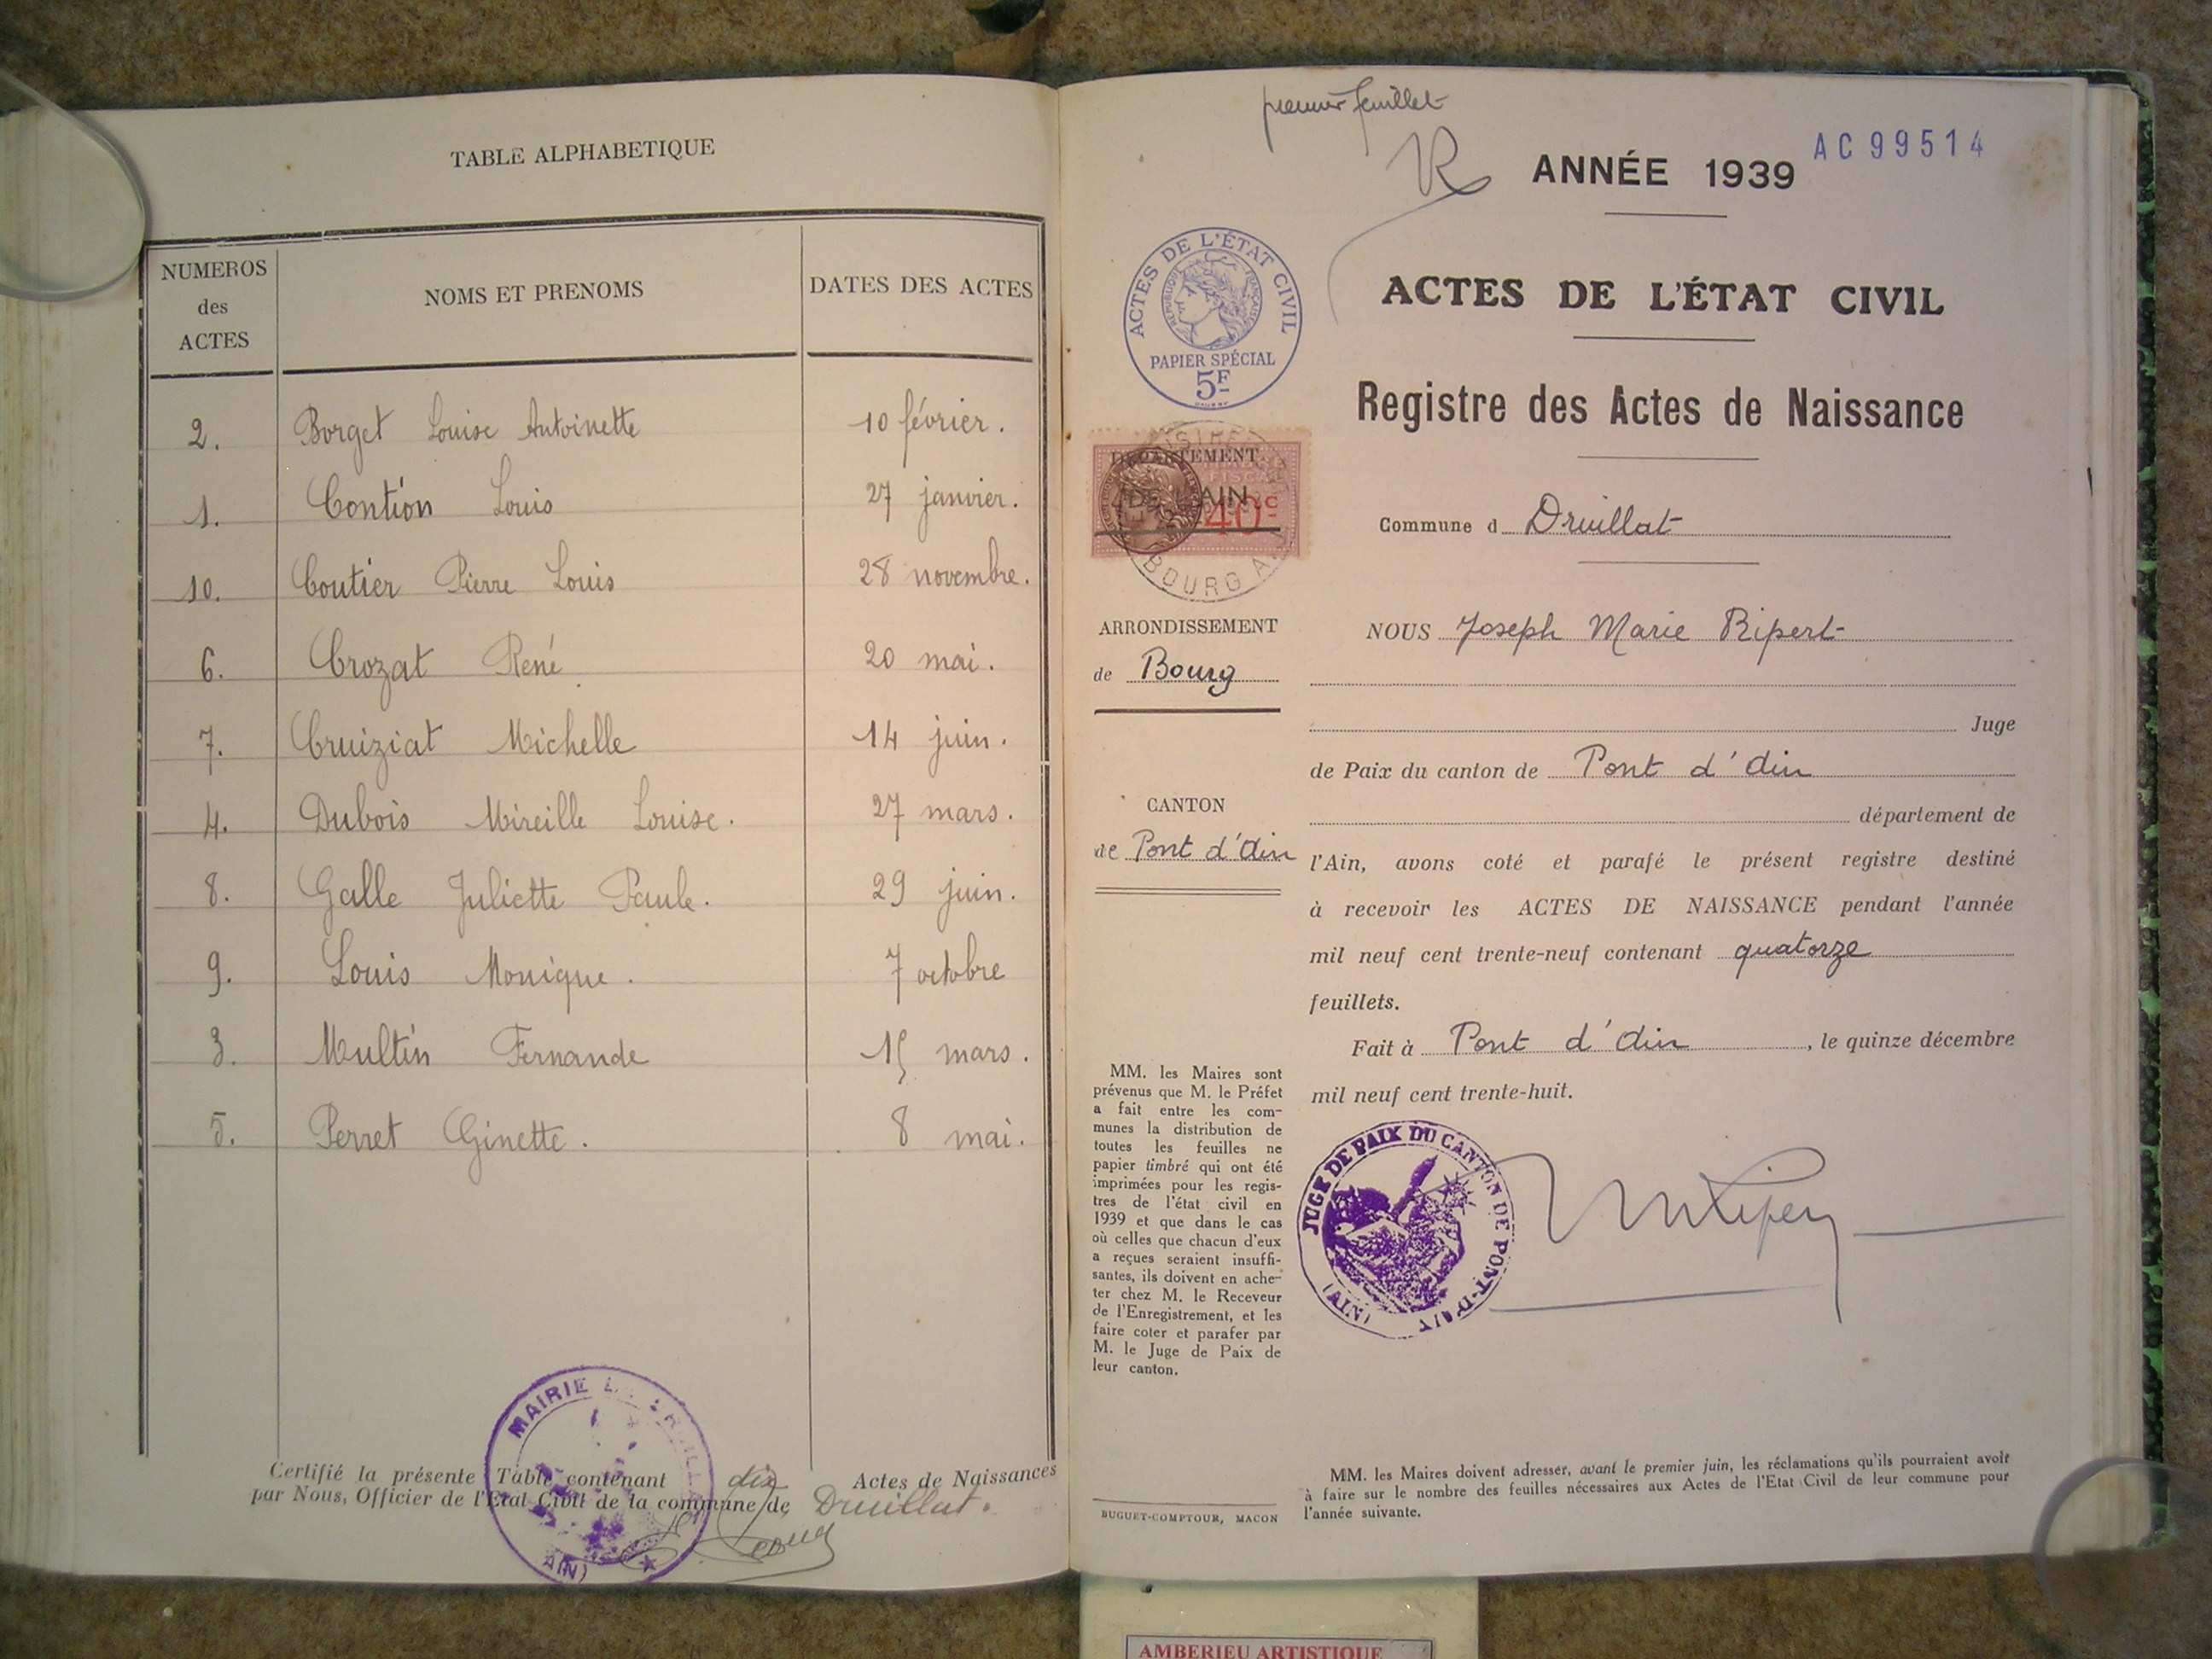 TABLE ALPHABETIQUE
NUMEROS des ACTES
NOMS ET PRENOMS
DATES DES ACTES
2. Borget Louise Antoinette 10 février.
1. Contion Louis 27 janvier.
10. Coutier Pierre Louis 28 novembre.
6. Crozat René 20 mai.
7. Cruiziat Michelle 14 juin.
4. Dubois Mireille Louise. 27 mars.
8. Galle Juliette Paule. 29 juin.
9. Louis Monique. 7 octobre
3. Multin Fernande 15 mars.
5. Perret Ginette. 8 mai.
Certifié la présente Table contenant dix Actes de Naissances
par Nous, Officier de l'Etat Civil de la commune de Druillat.
MAIRIE
AIN)
premier feuillet
R
ANNÉE 1939
AC99514
ACTES DE L'ÉTAT CIVIL
RÉPUBLIQUE FRANÇAISE
PAPIER SPÉCIAL
5F
DÉPARTEMENT
DE L'AIN
40c
BOURG
ACTES DE L'ÉTAT CIVIL
Registre des Actes de Naissance
Commune d Druillat
ARRONDISSEMENT
de Bourg
CANTON
de Pont d'Ain
NOUS Joseph Marie Ripert
Juge
de Paix du canton de Pont d'Ain
département de
l'Ain, avons coté et parafé le présent registre destiné
à recevoir les ACTES DE NAISSANCE pendant l'année
mil neuf cent trente-neuf contenant quatorze
feuillets.
Fait à Pont d'Ain, le quinze décembre
mil neuf cent trente-huit.
JUGE DE PAIX DU CANTON DE PONT-D'AIN
(AIN)
MM. les Maires sont
prévenus que M. le Préfet
a fait entre les com-
munes la distribution de
toutes les feuilles ne
papier timbré qui ont été
imprimées pour les regis-
tres de l'état civil en
1939 et que dans le cas
où celles que chacun d'eux
a reçues seraient insuffi-
santes, ils doivent en ache-
ter chez M. le Receveur
de l'Enregistrement, et les
faire coter et parafer par
M. le Juge de Paix de
leur canton.
BUGUET-COMPTOUR, MACON
MM. les Maires doivent adresser, avant le premier juin, les réclamations qu'ils pourraient avoir
à faire sur le nombre des feuilles nécessaires aux Actes de l'Etat Civil de leur commune pour
l'année suivante.
AMBERIEU ARTISTIQUE